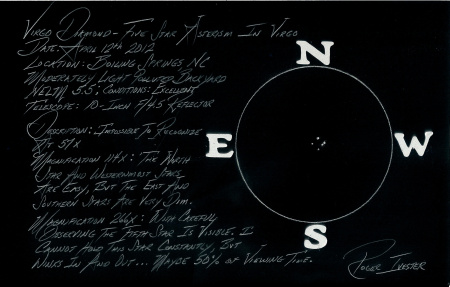 Virgo Diamond - Five Star Asterism In Virgo
Date: April 12th 2012
Location: Boiling Springs, NC
Moderately Light Polluted Backyard
NELM 5.5; Conditions: Excellent
Telescope: 10-Inch F/4.5 Reflector
Description: Impossible To Recognize
At 57x
Magnification 114x: The North
Star And Westernmost Stars
Are Easy, But The East And
Southern Stars Are Very Dim.
Magnification 266x: With Careful
Observing The Fifth Star Is Visible. I
Cannot Hold This Star Constantly, But
Winks In And Out... Maybe 50% of Viewing Time.
N
E
W
S
Roger Ivester